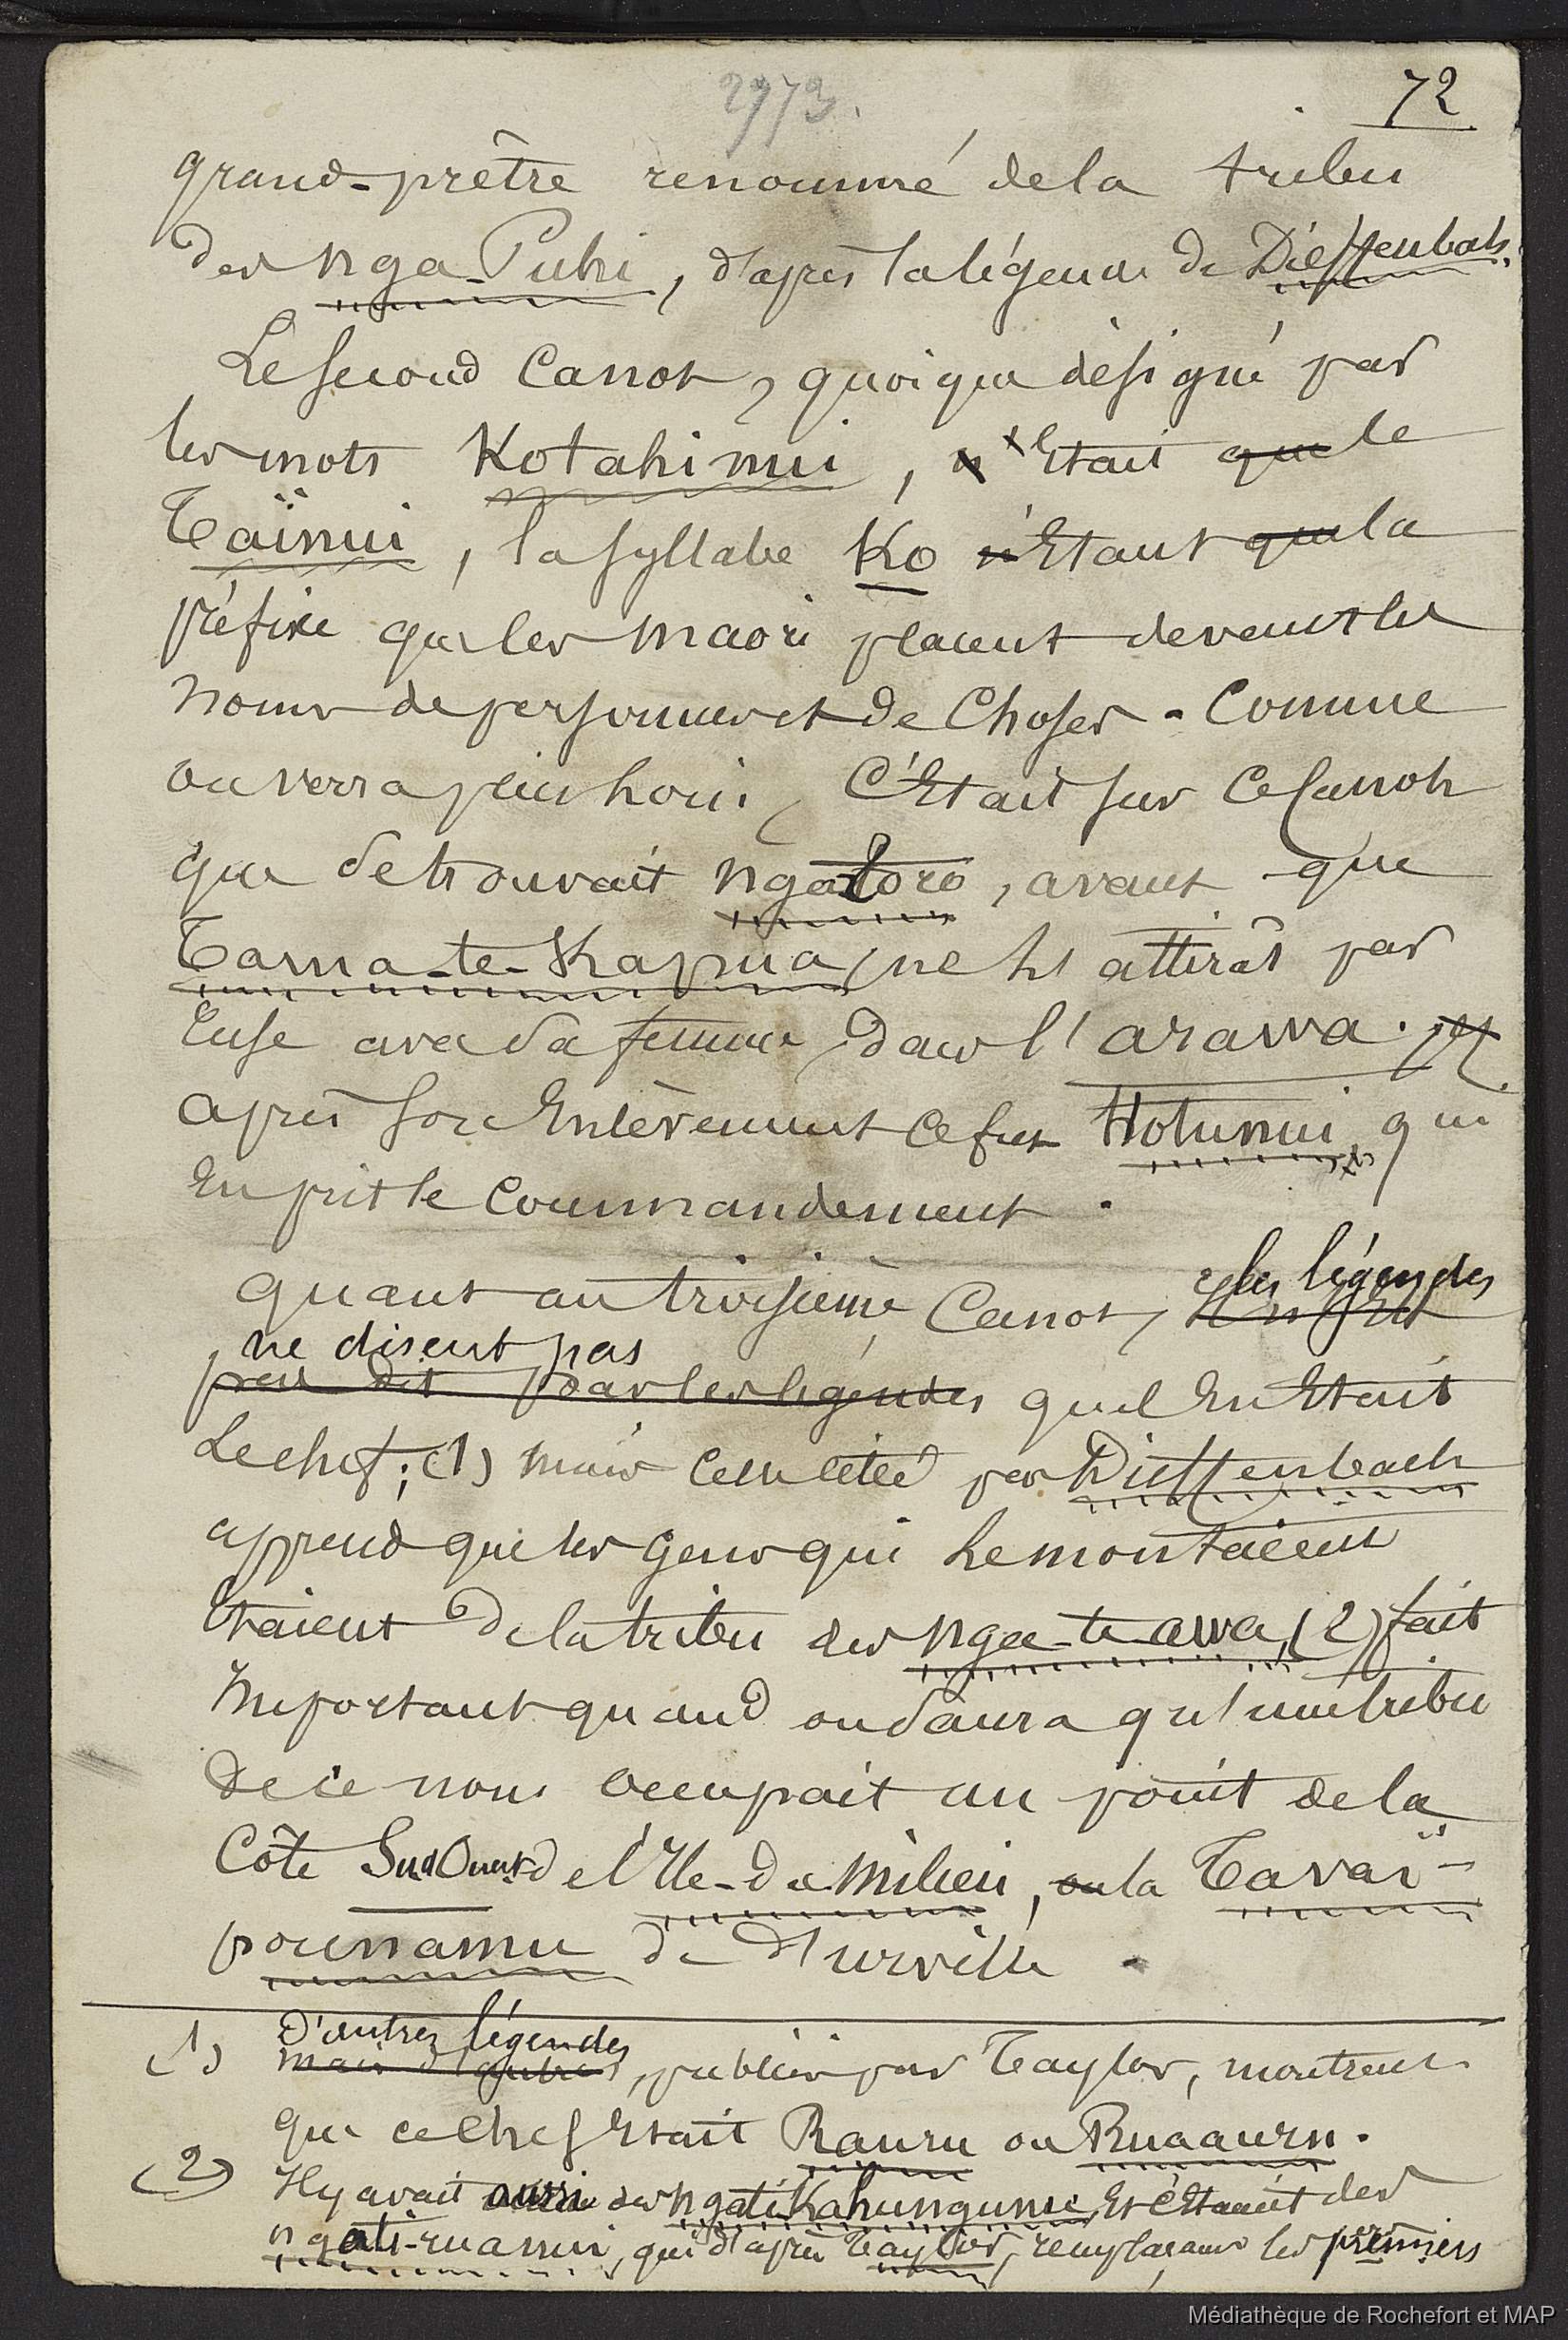 2973.
72
grand-prêtre renommé de la tribu
des Nga-Puhi, d'après la légende de Dieffenbach.
Le second Canot, quoique désigné par
les mots Kotahinui, n'était que le
Taïnui, la syllabe Ko n'étant que la
préfixe que les maori placent devant les
noms de personnes et de Choses. Comme
on verra plus loin, C'était sur ce Canot
que se trouvait Ngatoro, avant que
Tama-te-Kapua, ne les attirât par
ruse avec sa femme, dans l'arawa.
après son Enlèvement ce fut Hotunui, qui
en prit le Commandement.
quant au troisième Canot, les légendes
ne disent pas
pas dit par les légendes quel en était
Le chef; (1) mais celle citée par Dieffenbach
apprend que les gens qui le montaient
étaient de la tribu des Nga-te-awa, (2) fait
Important quand on saura qu'une tribu
de ce nom occupait un point de la
Côte Sud Ouest de l'Ile-du-Milieu, ou la Tavaï-
pounamu de d'Urville.
(1) D'autres légendes
mais d'autres, publiées par Taylor, montrent
que ce Chef était Rauru ou Ruaauru.
(2) Il y avait aussi des Ngati Kahungunu, Et c'étaient des
Ngati-ruanui, qui d'après Taylor, remplaçaient les premiers
Médiathèque de Rochefort et MAP